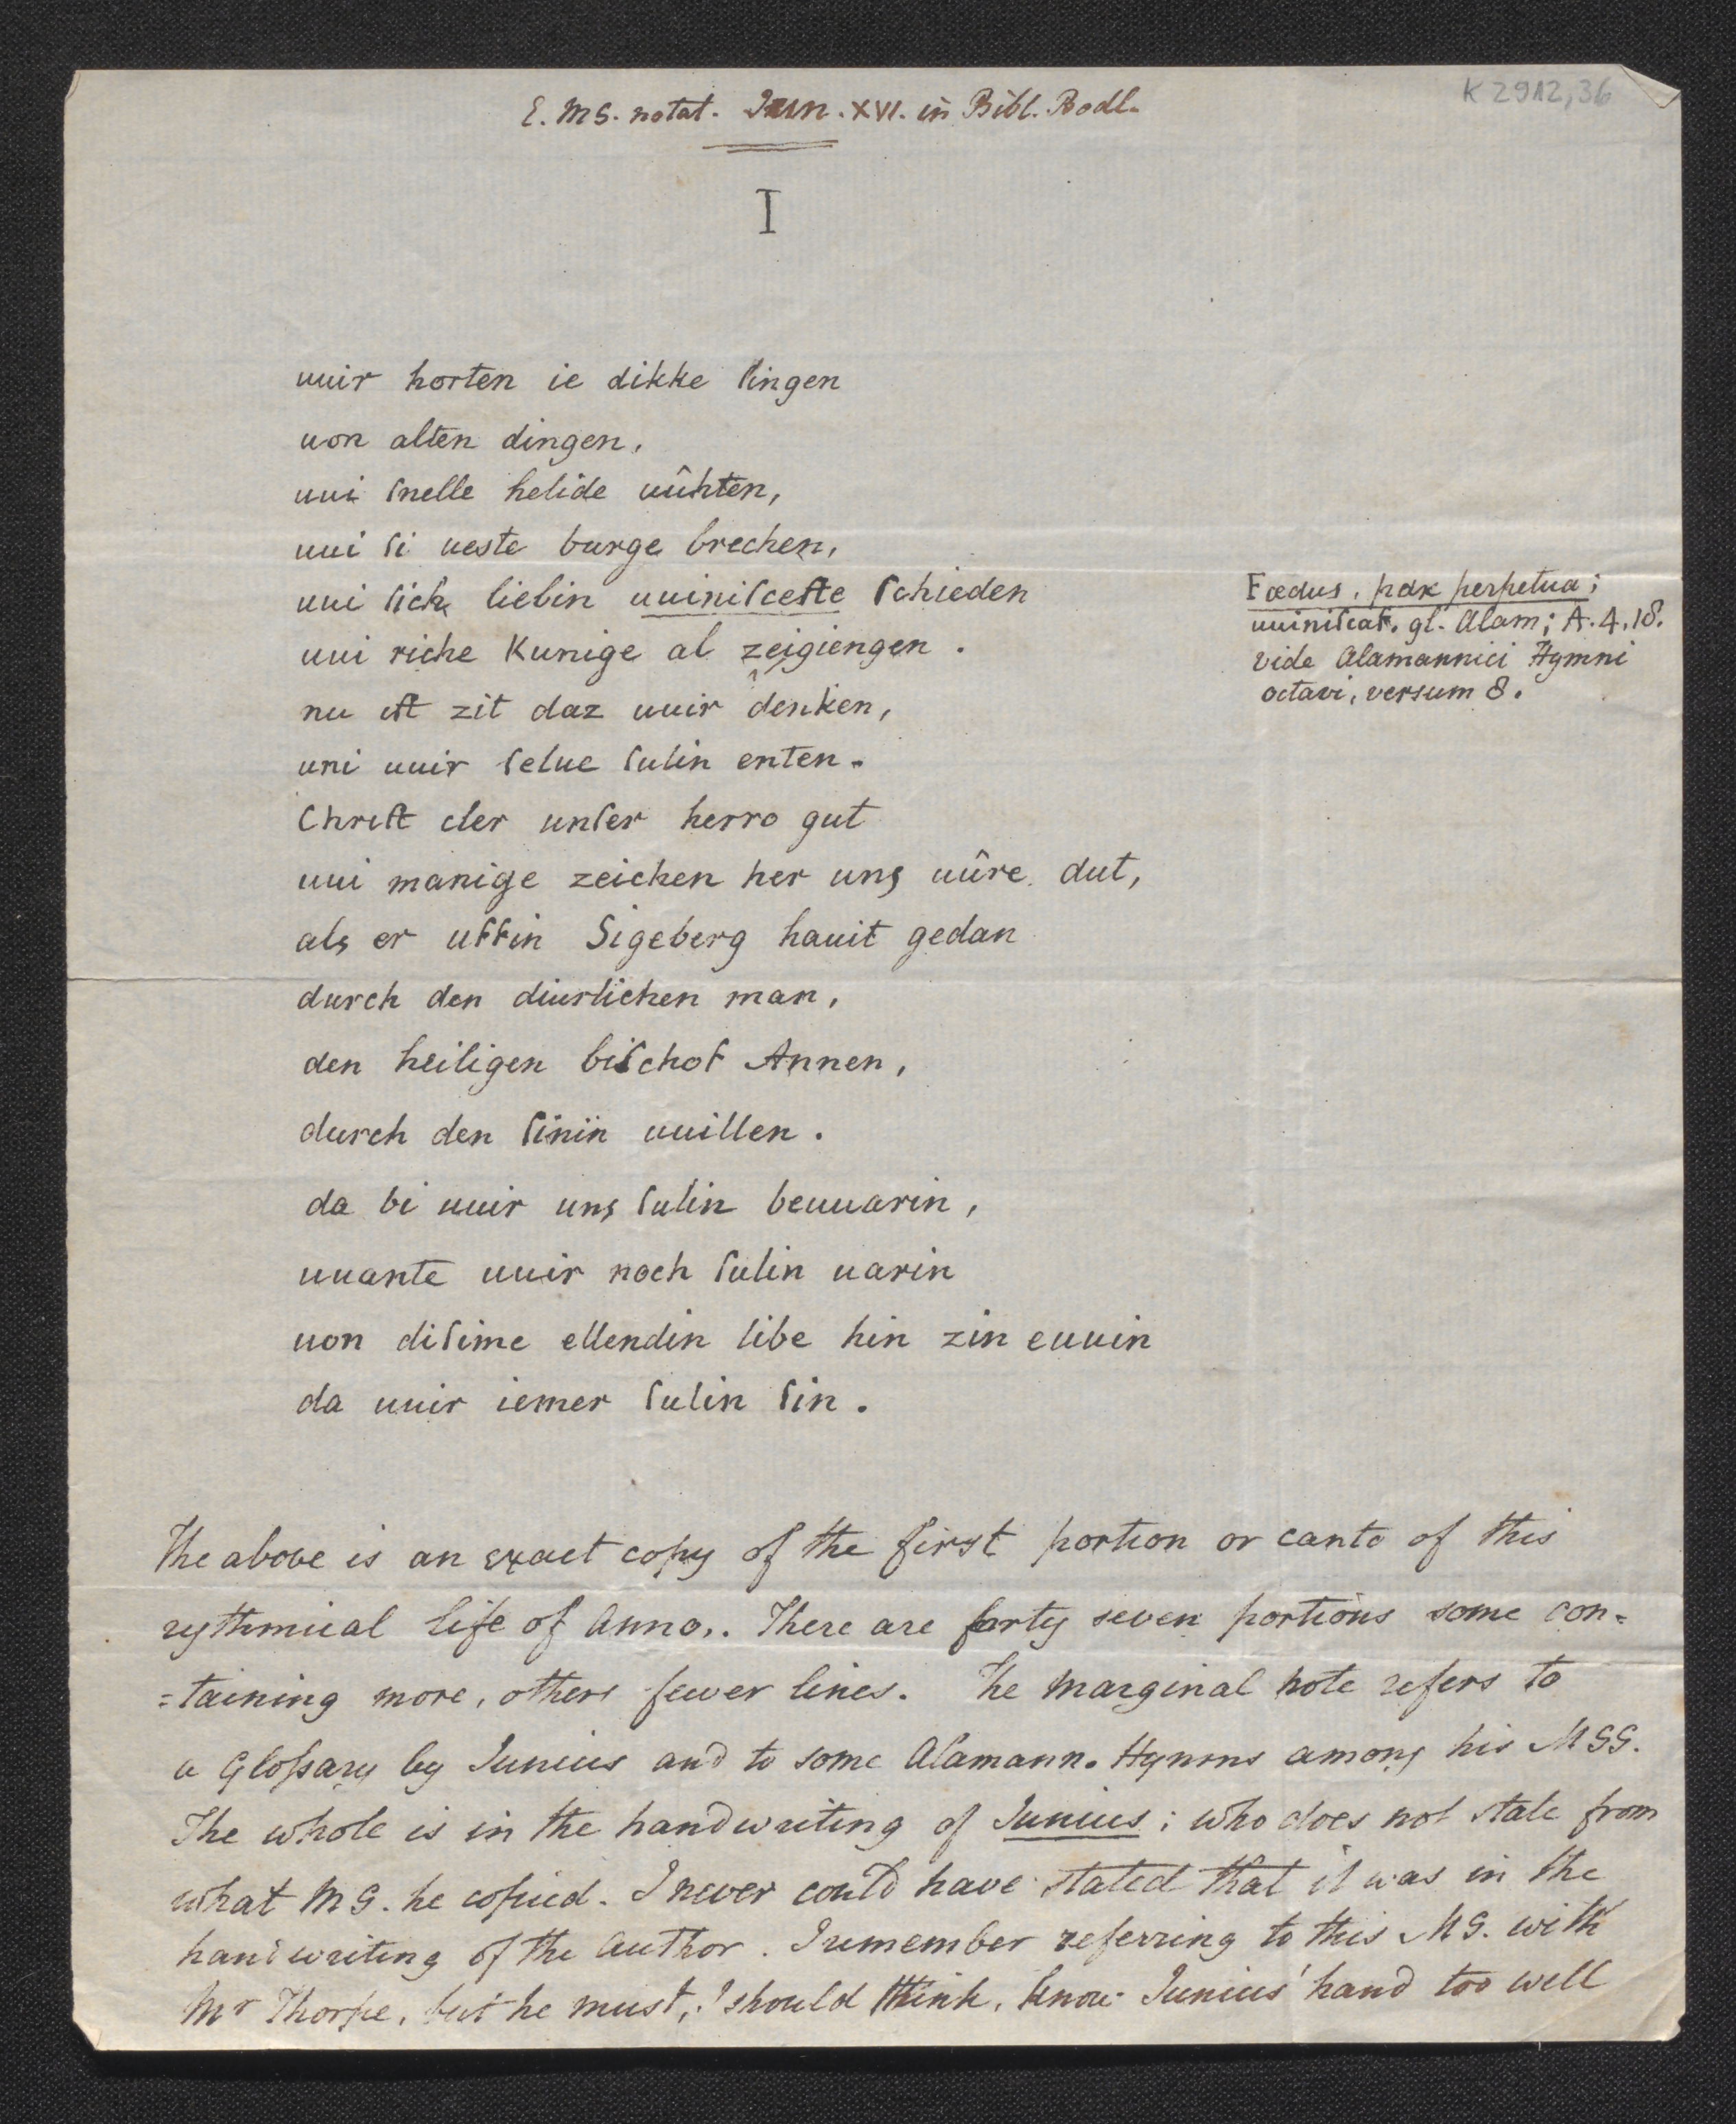 K 2912,36
E. MS. notat. Jun. XVI. in Bibl. Bodl.
I
uuir horten ie dikke ſingen
uon alten dingen,
uui ſnelle helide uûhten,
uui ſi ueste burge brechen,
uui ſich liebin uuiniſceſte ſchieden
uui riche Kunige al zeigiengen.
nu iſt zit daz uuir denken,
uui uuir ſelue ſulin enten.
Chriſt der unſer herro gut
uui manige zeichen her uns uûre dut,
als er uffin Sigeberg hauit gedan
durch den diurlichen man,
den heiligen biſchof Annen,
durch den ſinin uuillen.
da bi uuir uns ſulin beuuarin,
uuante uuir noch ſulin uarin
uon diſime ellendin libe hin zin euuin
da uuir iemer ſulin ſin.
Fœdus, pax perpetua;
uuiniſcaf. gl. Alam; A. 4. 18.
vide Alamannici Hymni
octavi, versum 8.
The above is an exact copy of the first portion or canto of this
rythmical life of Anno,. There are forty seven portions some con=
=taining more, others fewer lines. The marginal note refers to
a Gloſsary by Junius and to some Alamann. Hymns among his MSS.
The whole is in the handwriting of Junius; who does not state from
what MS. he copied. I never could have stated that it was in the
handwriting of the Author. I remember referring to this MS. with
Mr Thorpe, but he must, I should think, know Junius' hand too well